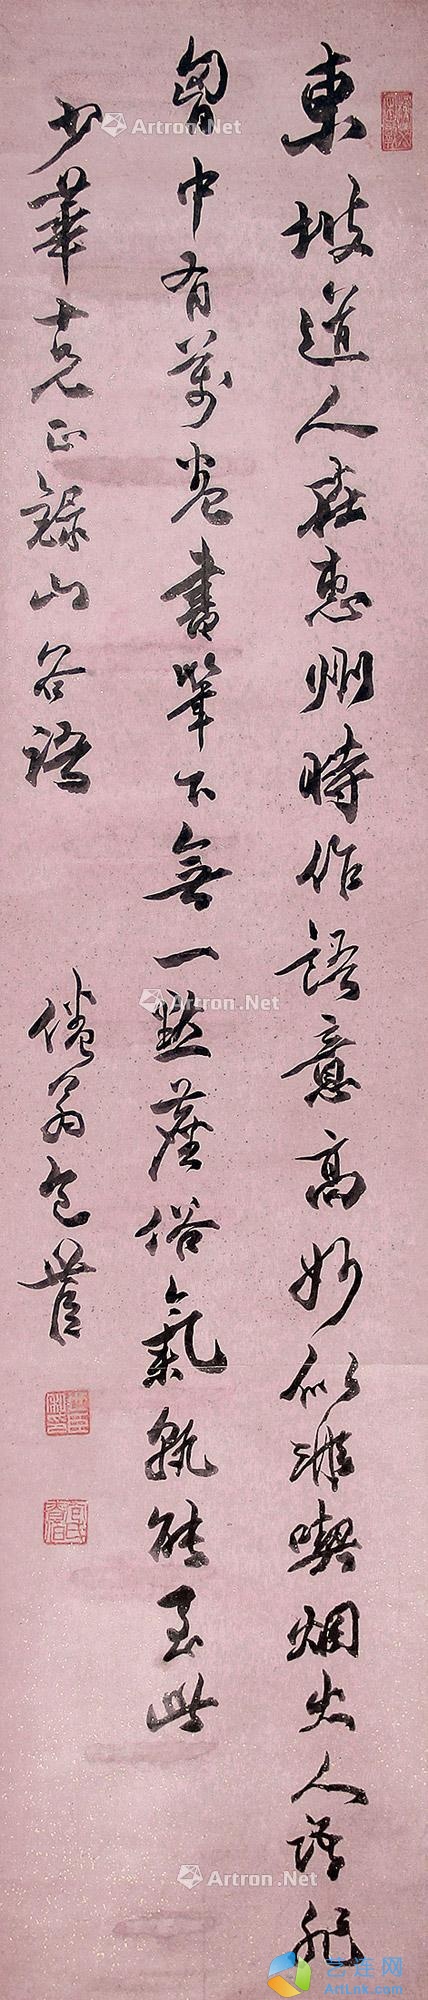 東坡道人在惠州時作語意高妙似非喫烟火人語非
胷中有萬卷書筆下無一點塵俗氣孰能至此
少華大兄正錄山谷語
倦翁包世臣
Artron.Net
Artron.Net
Artron.Net
Artron.Net
Artron.Net
Artron.Net
艺连网
ArtLnk.com